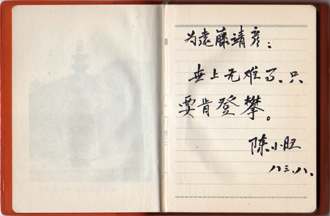 为遠藤靖彦：
世上无难事、只
要肯登攀。
陈小旺
八三.八.